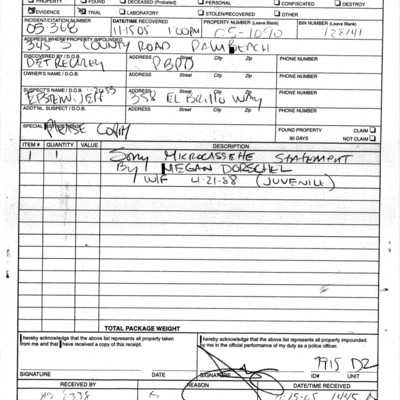 PROPERTY FOUND DECEASED (Probated) PERSONAL CONFISCATED DESTROY
EVIDENCE TRIAL LABORATORY STOLEN/RECOVERED OTHER
INCIDENT/CITATION NUMBER DATE/TIME RECOVERED PROPERTY NUMBER (Leave Blank) BIN NUMBER (Leave Blank)
05-368 11-15-05 1:00PM 05-1090
ADDRESS WHERE PROPERTY IMPOUNDED
345 S COUNTY ROAD PALM BEACH
DISCOVERED BY / D.O.B. ADDRESS Street City Zip PHONE NUMBER
DET RECAREY PBPD
OWNER'S NAME / D.O.B. ADDRESS Street City Zip PHONE NUMBER
SUSPECT'S NAME / D.O.B. ADDRESS Street City Zip PHONE NUMBER
EPSTEIN, JEFF 358 EL BRILLO WAY
ADDT'NL SUSPECT / D.O.B. ADDRESS Street City Zip PHONE NUMBER
SPECIAL
PLEASE COPY
FOUND PROPERTY CLAIM
90 DAYS NOT CLAIM
ITEM # QUANTITY VALUE DESCRIPTION
1 1 SONY MICROCASSETTE STATEMENT
BY
W/F (JUVENILE)
TOTAL PACKAGE WEIGHT
I hereby acknowledge that the above list represents all property taken
from me and that I have received a copy of this receipt.
I hereby acknowledge that the above list represents all property impounded
by me in the official performance of my duty as a police officer.
7915 D2
SIGNATURE DATE SIGNATURE ID# UNIT
RECEIVED BY REASON DATE/TIME RECEIVED
11-15-05 1445